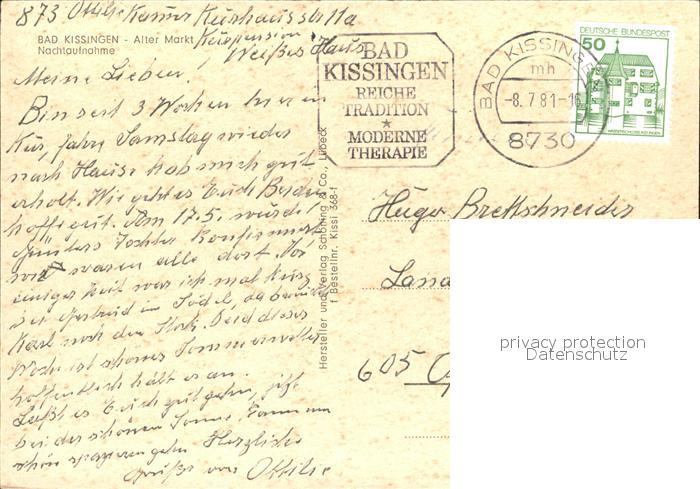 873 Ottilie Kurhausstr 11a
BAD KISSINGEN - Alter Markt
Nachtaufnahme
Kurpension
Weißes Haus
Meine Lieben!
Bin seit 3 Wochen hier in
Kur, fahre Samstag wieder
nach Hause hab mich gut
erholt. Wie geht es Euch Beiden
hoffe gut. Am 17.5. wurde
Günters Tochter Konfirmiert
wir waren alle dort. Vor
einiger Zeit war ich mal kurz
bei in
Karl noch den Stock. Seid dieser
Woche ist schönes Sommerwetter
hoffentlich hält es an.
Laßt es Euch gut gehen, jetzt
bei der schönen Sonne kann man
schön spazieren gehn Herzliche
Grüße von Ottilie
BAD
KISSINGEN
REICHE
TRADITION
★
MODERNE
THERAPIE
BAD KISSINGEN
mh
-8. 7. 81-16
8730
DEUTSCHE BUNDESPOST
50
WASSERSCHLOSS INZLINGEN
Hersteller und Verlag Schöning & Co., Lübeck
Bestellnr. Kissi 368-f
Hugo Brettschneider
605
privacy protection
Datenschutz